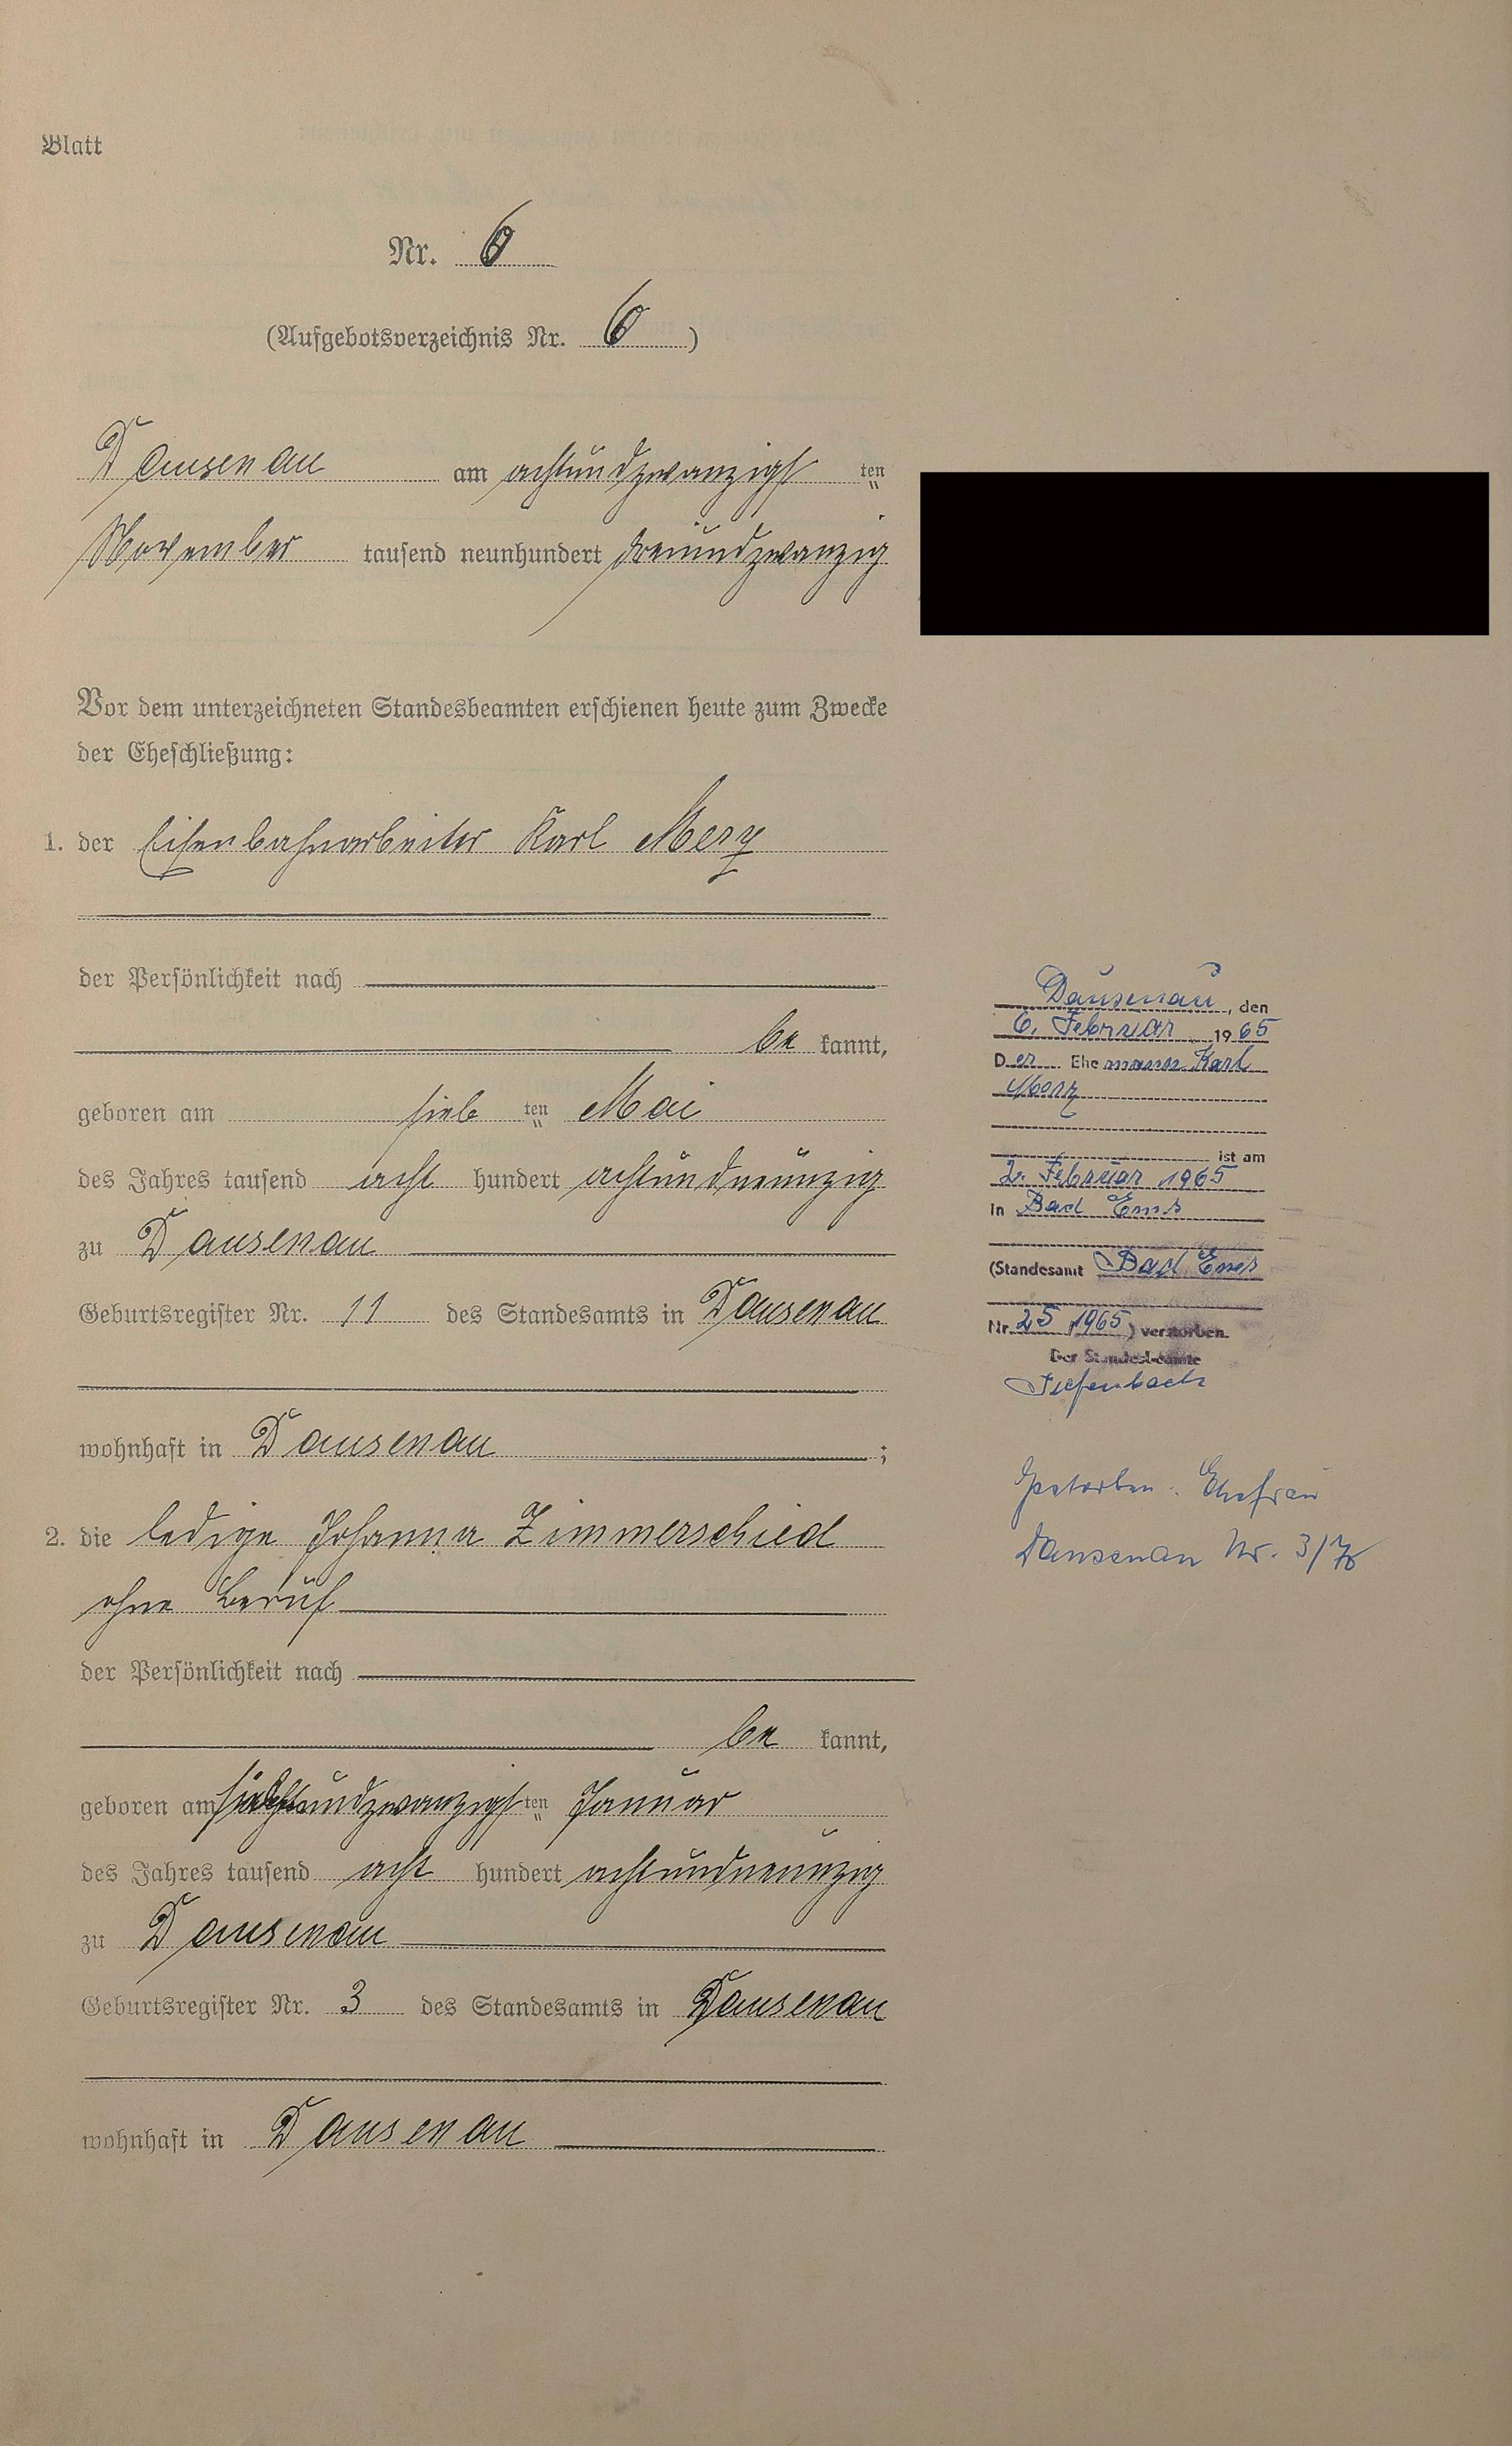 Blatt
Nr. 6
(Aufgebotsverzeichnis Nr. 6 )
Dausenau am achtundzwanzigst ten
November tausend neunhundert dreiundzwanzig
Vor dem unterzeichneten Standesbeamten erschienen heute zum Zwecke
der Eheschließung:
1. der Eisenbahnarbeiter Karl Merz
der Persönlichkeit nach
be kannt,
geboren am sieb ten Mai
des Jahres tausend acht hundert achtundneunzig
zu Dausenau
Geburtsregister Nr. 11 des Standesamts in Dausenau
wohnhaft in Dausenau ;
2. die ledige Johanna Zimmerschied
ohne Beruf
der Persönlichkeit nach
be kannt,
geboren am ten Januar
des Jahres tausend acht hundert achtundneunzig
zu Dausenau
Geburtsregister Nr. 3 des Standesamts in Dausenau
wohnhaft in Dausenau
Dausenau, den
6. Februar 1965
Der Ehemann Karl
Merz
ist am
2. Februar 1965
in Bad Ems
(Standesamt Bad Ems
Nr. 25/1965) verstorben.
Der Standesbeamte
Tiefenbach
Gestorben: Ehefrau
Dausenau Nr. 3/